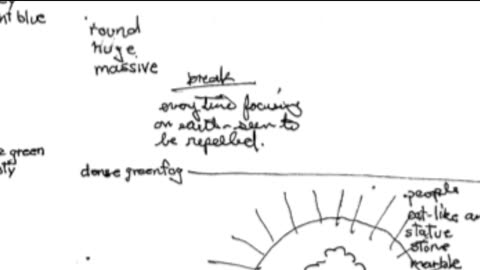 nt blue
round
huge
massive
break
every time focusing
on earth - seem to
be repelled.
green
dense green fog
people
cat-like an
statue
stone
marble